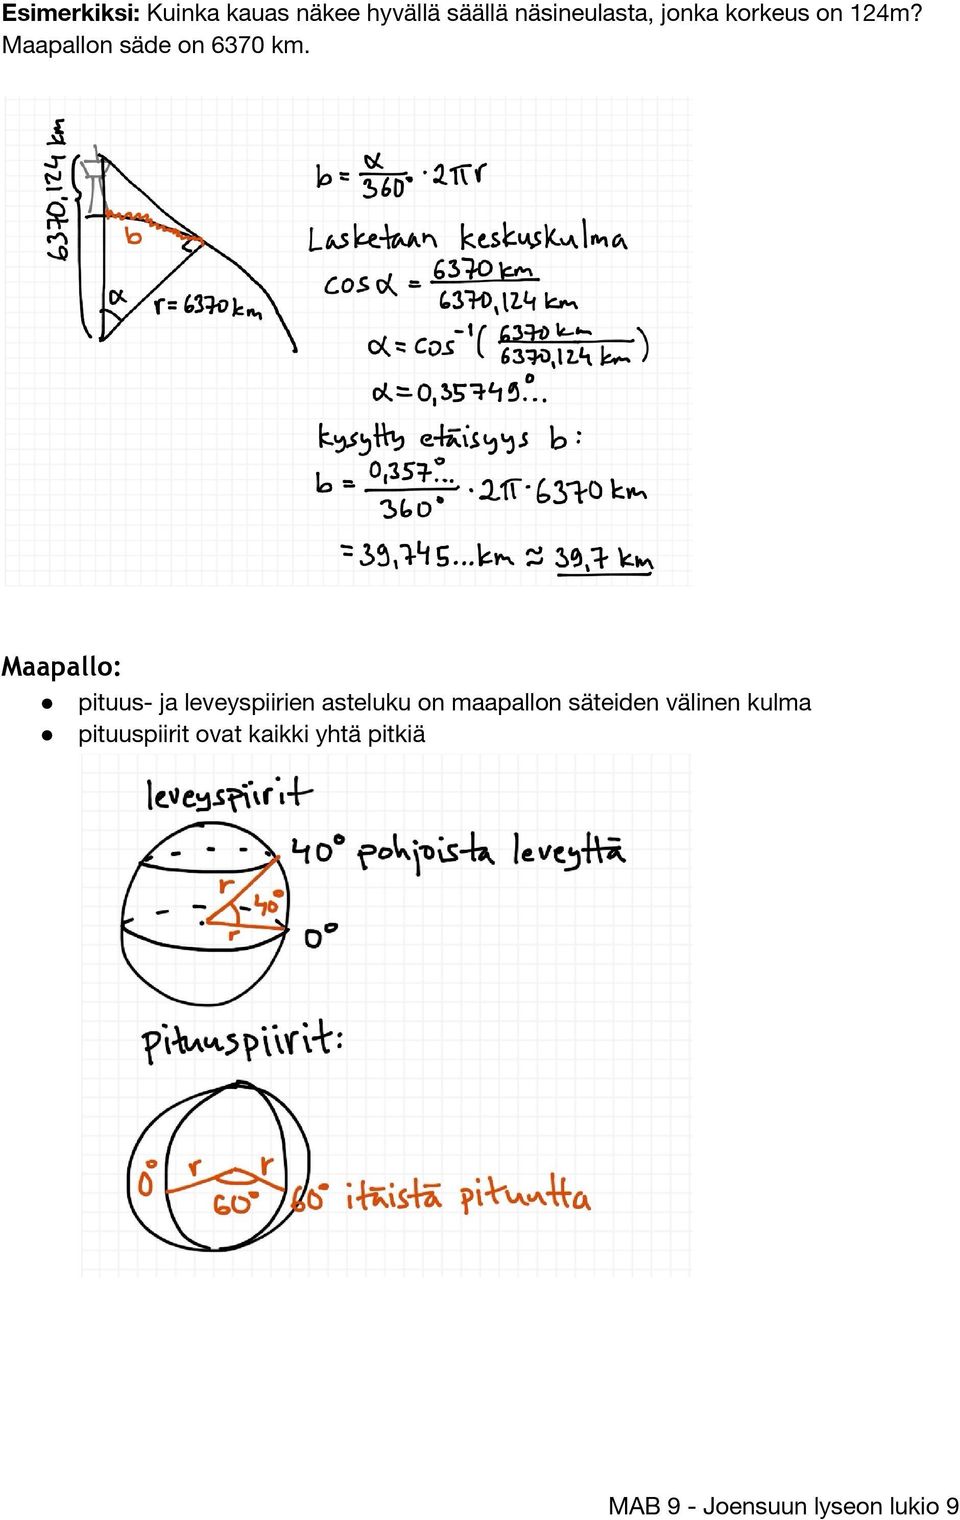 Esimerkiksi: Kuinka kauas näkee hyvällä säällä näsineulasta, jonka korkeus on 124m?
Maapallon säde on 6370 km.
6370,124 km
b
α
r = 6370 km
b = α/360° · 2πr
Lasketaan keskuskulma
cos α = 6370 km / 6370,124 km
α = cos⁻¹( 6370 km / 6370,124 km )
α = 0,35749°...
kysytty etäisyys b:
b = 0,357°... / 360° · 2π · 6370 km
= 39,745...km ≈ 39,7 km
Maapallo:
● pituus- ja leveyspiirien asteluku on maapallon säteiden välinen kulma
● pituuspiirit ovat kaikki yhtä pitkiä
leveyspiirit
40° pohjoista leveyttä
r
40°
r
0°
pituuspiirit:
0°
r
r
60°
60° itäistä pituutta
MAB 9 - Joensuun lyseon lukio 9